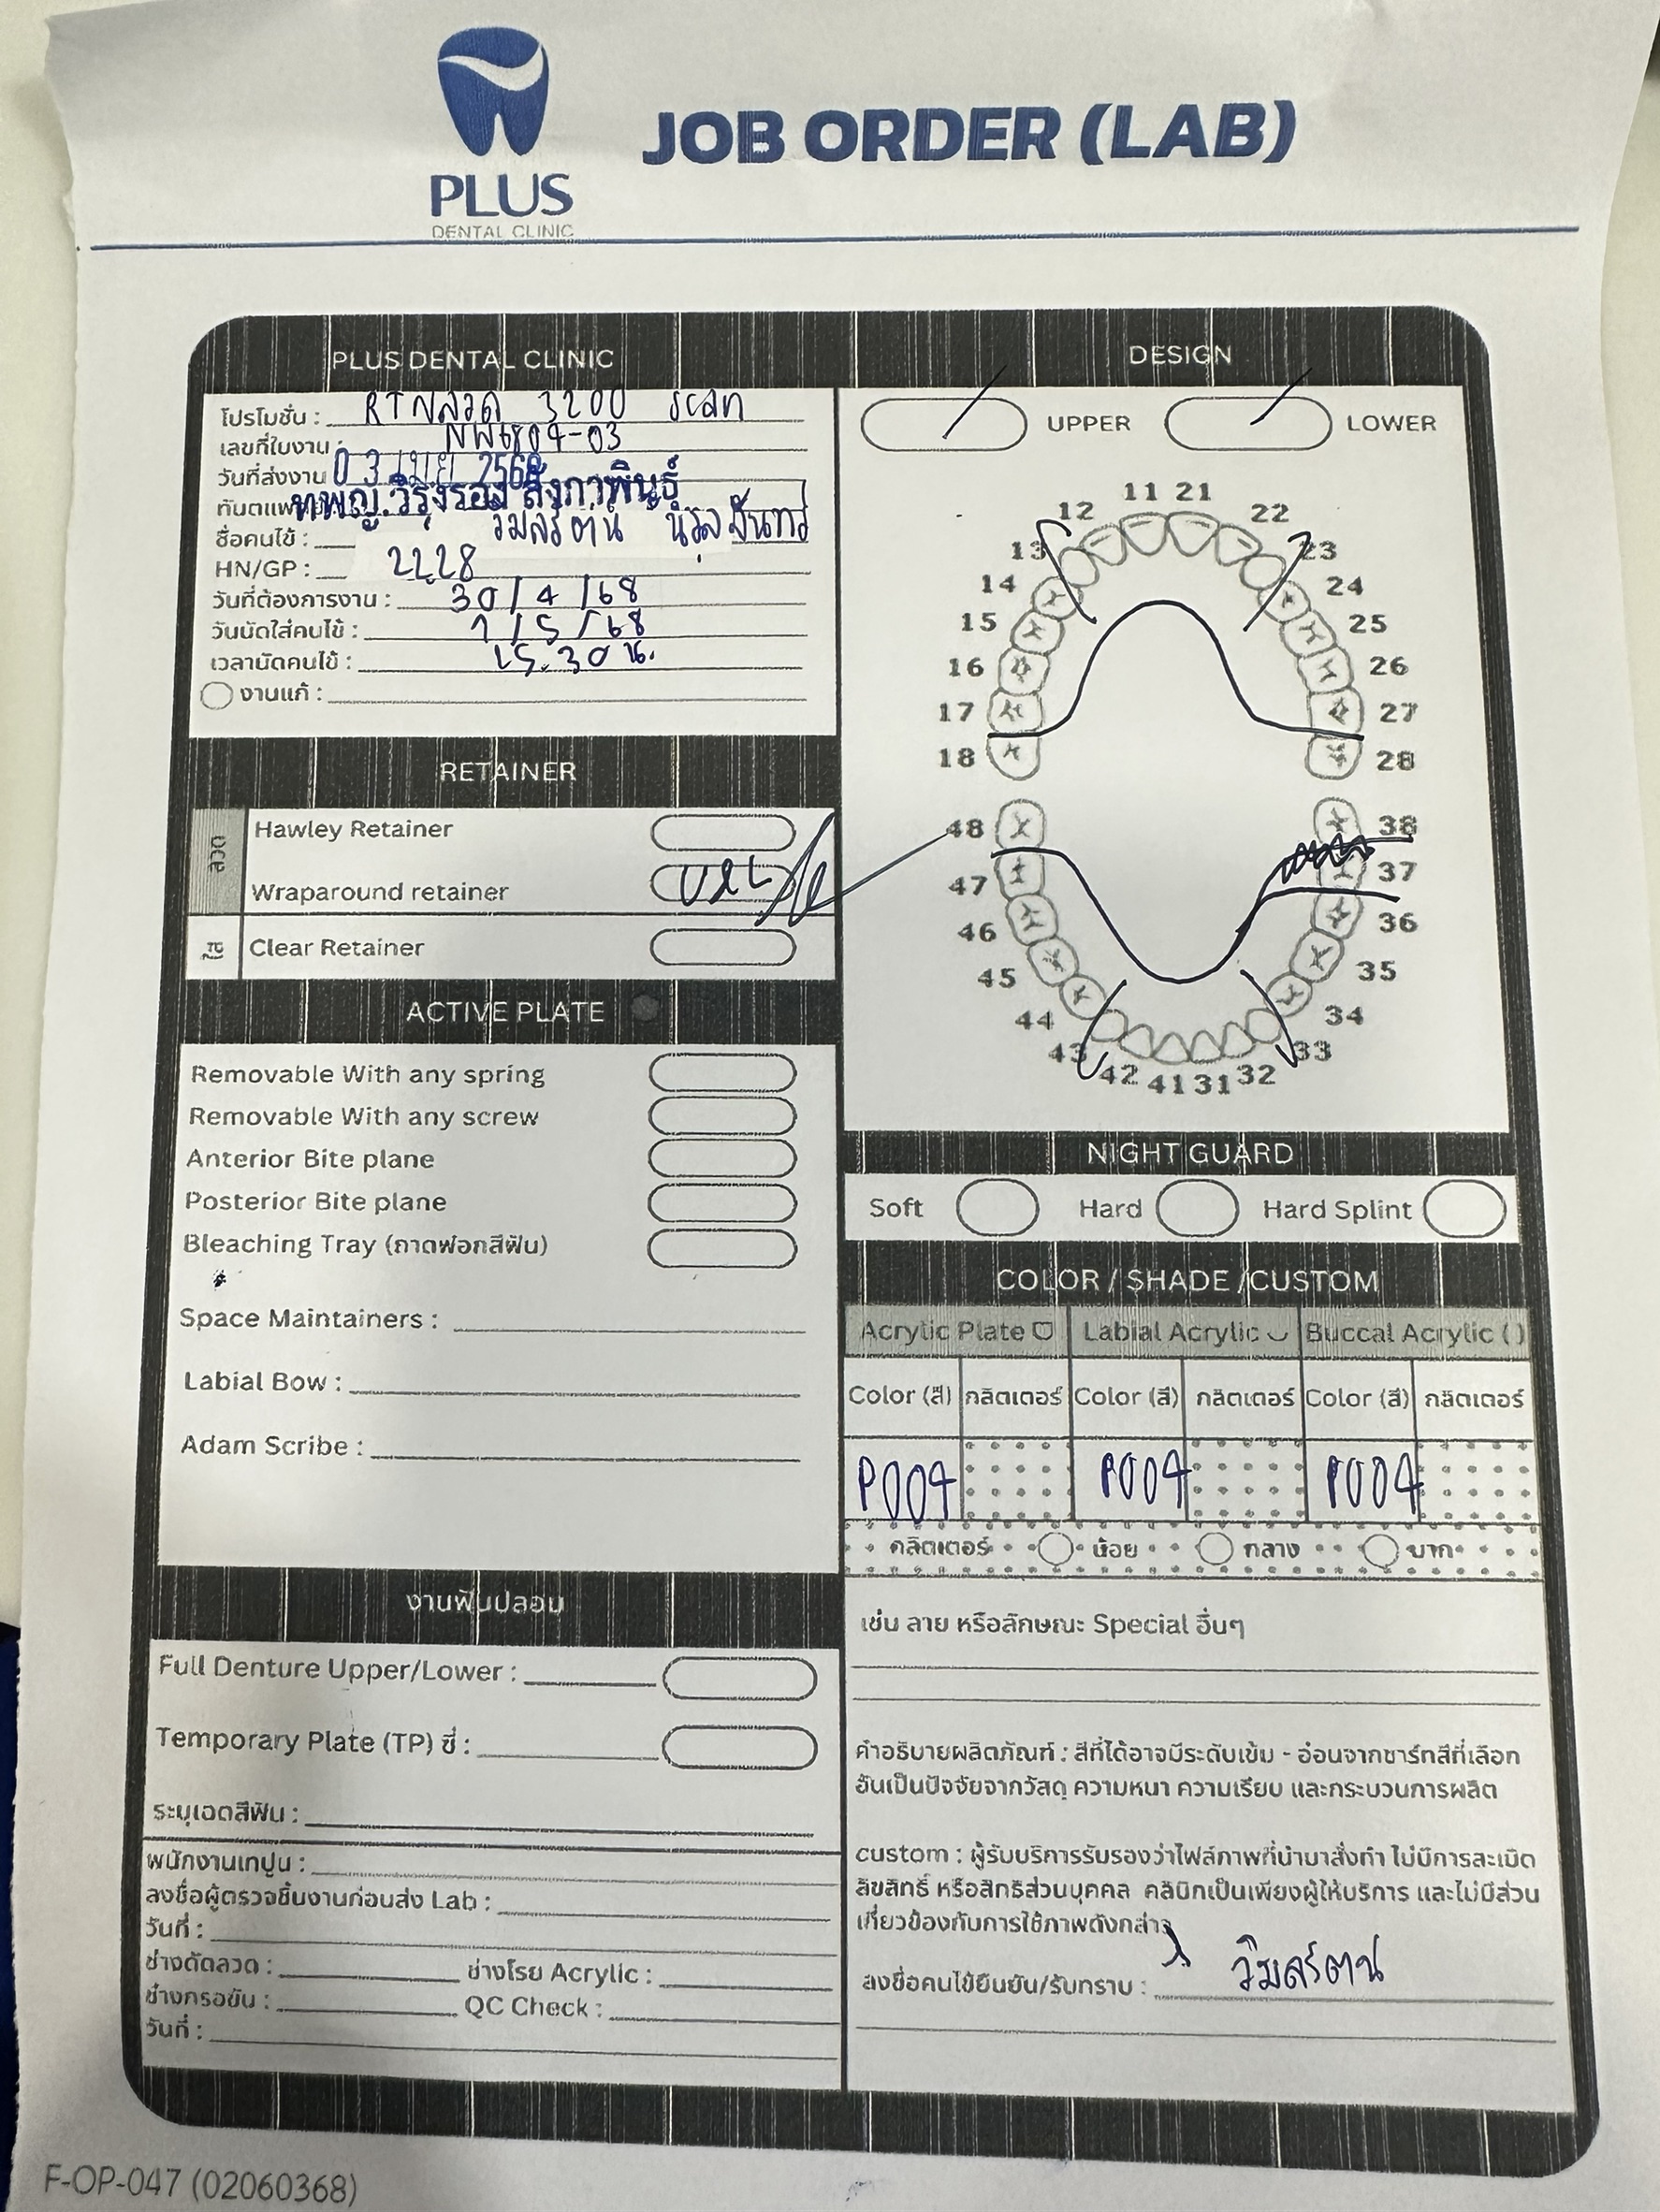 PLUS
DENTAL CLINIC
JOB ORDER (LAB)
PLUS DENTAL CLINIC
โปรโมชั่น : RTNลวด 3200 scan
เลขที่ใบงาน : NW6804-03
วันที่ส่งงาน 03 เม.ย. 2568
ทันตแพ ทพญ.วิรุ่งรอง
ชื่อคนไข้ : วิมลรัตน์
HN/GP : 2228
วันที่ต้องการงาน : 30/4/68
วันนัดใส่คนไข้ : 1/5/68
เวลานัดคนไข้ : 15.30 น.
งานแก้ :
RETAINER
ลวด
Hawley Retainer
Wraparound retainer
ใส
Clear Retainer
ACTIVE PLATE
Removable With any spring
Removable With any screw
Anterior Bite plane
Posterior Bite plane
Bleaching Tray (ถาดฟอกสีฟัน)
Space Maintainers :
Labial Bow :
Adam Scribe :
งานฟันปลอม
Full Denture Upper/Lower :
Temporary Plate (TP) ซี่ :
ระบุเฉดสีฟัน :
พนักงานเทปูน :
ลงชื่อผู้ตรวจชิ้นงานก่อนส่ง Lab :
วันที่ :
ช่างดัดลวด : ช่างโรย Acrylic :
ช่างกรอขัน : QC Check :
วันที่ :
DESIGN
UPPER LOWER
11 21
12 22
13 23
14 24
15 25
16 26
17 27
18 28
48 38
47 37
46 36
45 35
44 34
43 33
42 41 31 32
NIGHT GUARD
Soft Hard Hard Splint
COLOR / SHADE /CUSTOM
Acrytic Plate Labial Acrylic Buccal Acrytic ( )
Color (สี) กลิตเตอร์ Color (สี) กลิตเตอร์ Color (สี) กลิตเตอร์
P004 P004 P004
กลิตเตอร์ น้อย กลาง มาก
เช่น ลาย หรือลักษณะ Special อื่นๆ
คำอธิบายผลิตภัณฑ์ : สีที่ได้อาจมีระดับเข้ม - อ่อนจากชาร์ทสีที่เลือก
อันเป็นปัจจัยจากวัสดุ ความหนา ความเรียบ และกระบวนการผลิต
custom : ผู้รับบริการรับรองว่าไฟล์ภาพที่นำมาสั่งทำ ไม่มีการละเมิด
ลิขสิทธิ์ หรือสิทธิส่วนบุคคล คลินิกเป็นเพียงผู้ให้บริการ และไม่มีส่วน
เกี่ยวข้องกับการใช้ภาพดังกล่าว
ลงชื่อคนไข้ยืนยัน/รับทราบ : วิมลรัตน์
F-OP-047 (02060368)